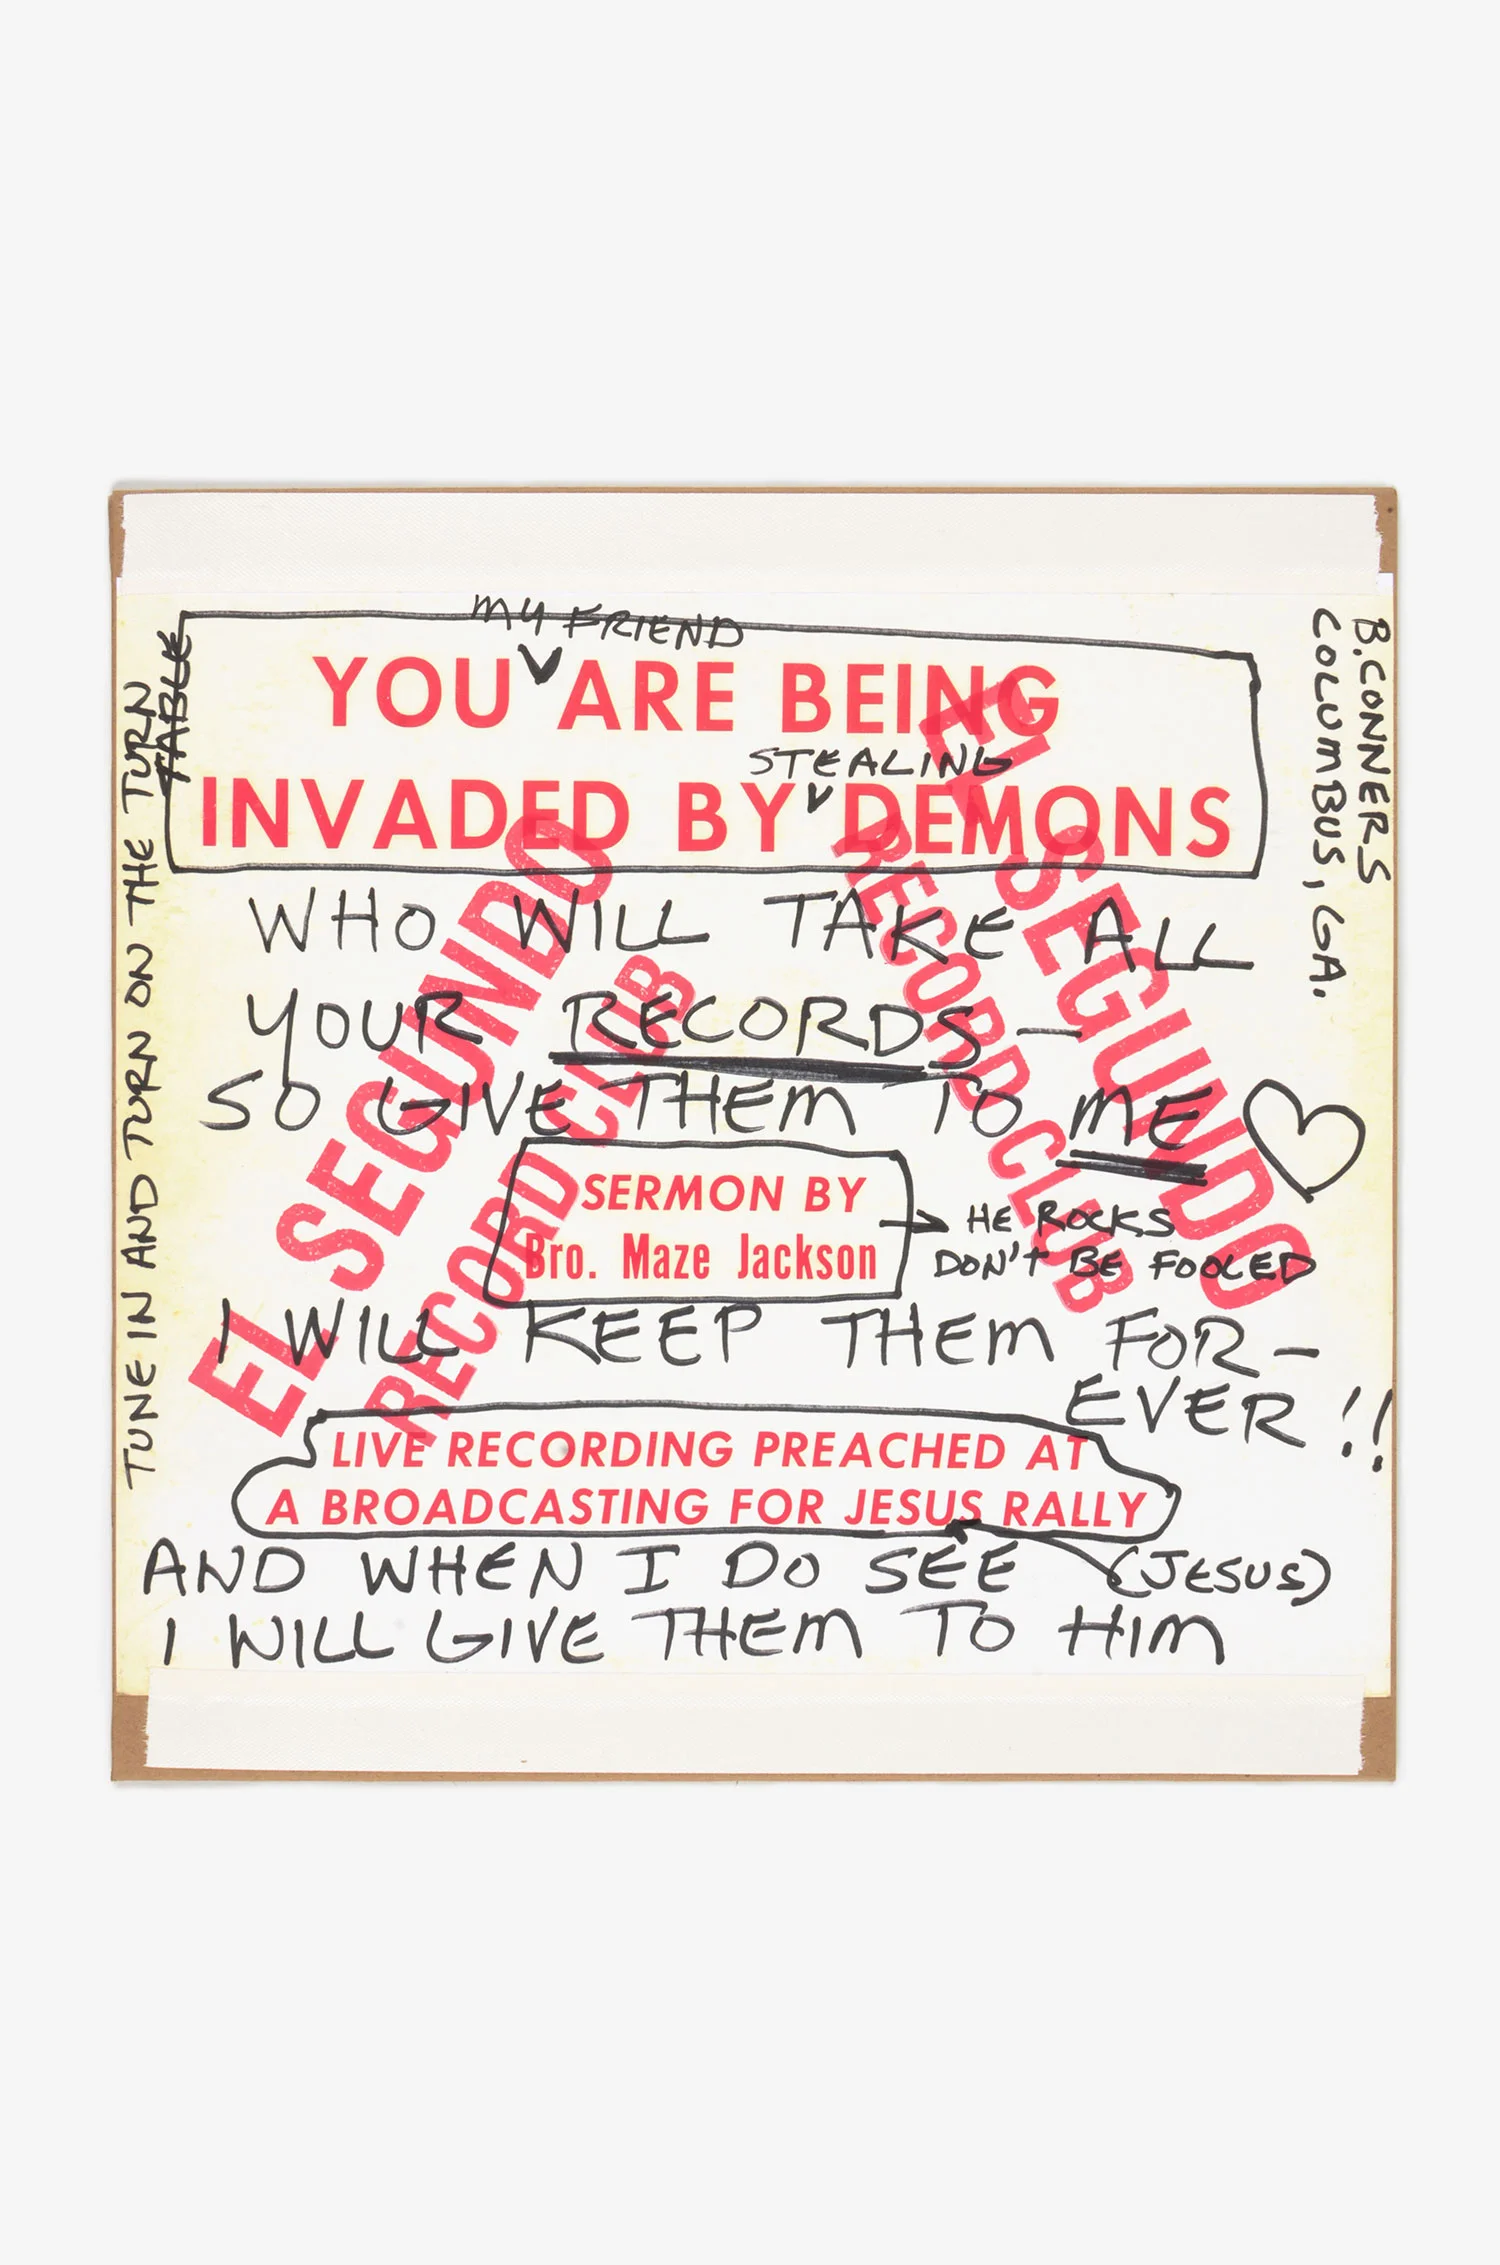 MY FRIEND
YOU ARE BEING
STEALING
INVADED BY DEMONS
WHO WILL TAKE ALL
YOUR RECORDS —
SO GIVE THEM TO ME
SERMON BY
Bro. Maze Jackson
HE ROCKS
DON'T BE FOOLED
I WILL KEEP THEM FOR-
EVER !!
LIVE RECORDING PREACHED AT
A BROADCASTING FOR JESUS RALLY
AND WHEN I DO SEE (JESUS)
I WILL GIVE THEM TO HIM
TUNE IN AND TURN ON THE TURN
TABLE
B. CONNERS
COLUMBUS, GA.
EL SEGUNDO
RECORD CLUB
EL SEGUNDO
RECORD CLUB